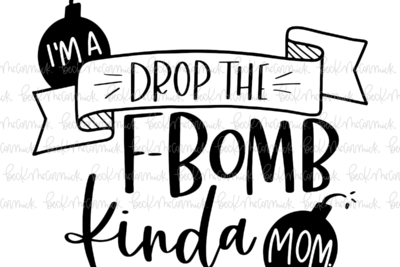 I'M A
DROP THE
F-BOMB
kinda
MOM.